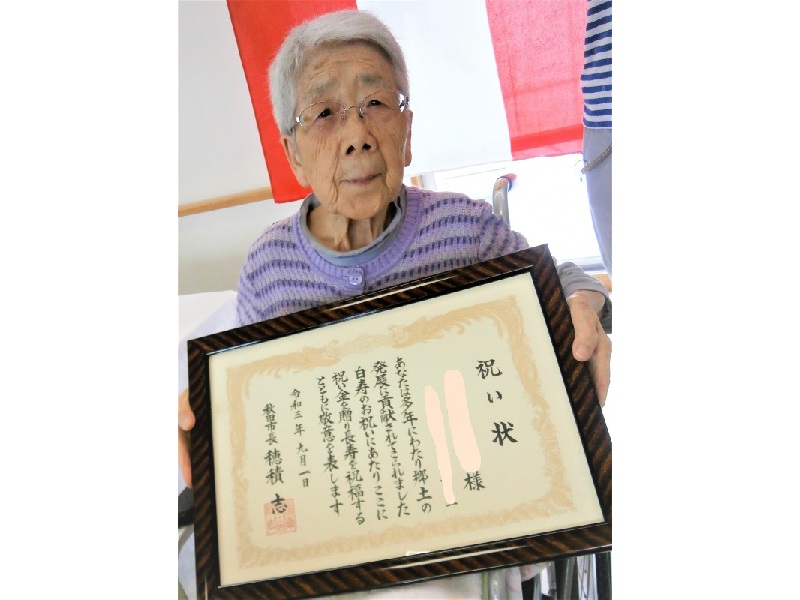 祝い状
様
あなたは多年にわたり郷土の
発展に貢献されてこられました
白寿のお祝いにあたりここに
祝い金を贈り長寿を祝福する
とともに敬意を表します
令和三年九月一日
秋田市長 穂積 志